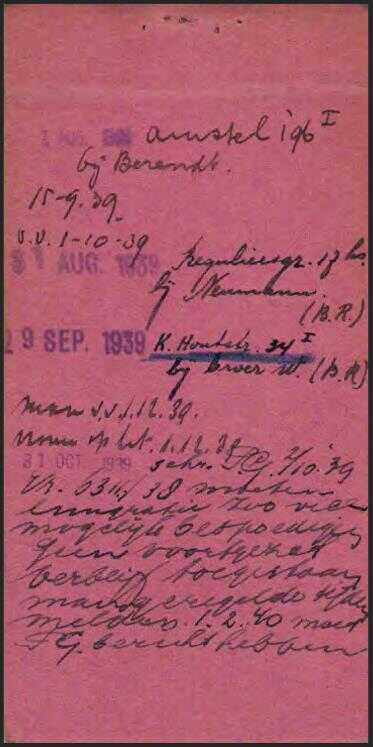 1 AUG. 1939 Amstel 196 I
bij Berendt.
15-9.39.
v.v. 1-10-39
31 AUG. 1939 Reguliersgr. 17 hs.
bij Neumann.
(B.R.)
29 SEP. 1939 K. Houtstr. 34 I
bij W. (B.R)
man v.v. 1.12.39.
1.12.39
31 OCT. 1939 schr. P.G. 2/10.39
38 moeten
emigratie zoo veel
mogelijk bespoedigen
geen voortgezet
verblijf toegestaan
melden. 1.2.40 moet
P.G. bericht hebben